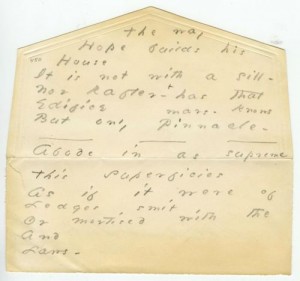 The Way
Hope builds his
House
It is not with a sill -
Nor Rafter + has that
Edifice mars - knows
But only Pinnacle -
Abode in as supreme
This superficies
As if it were of
Ledges smit
Or mortised with the
And
Laws -